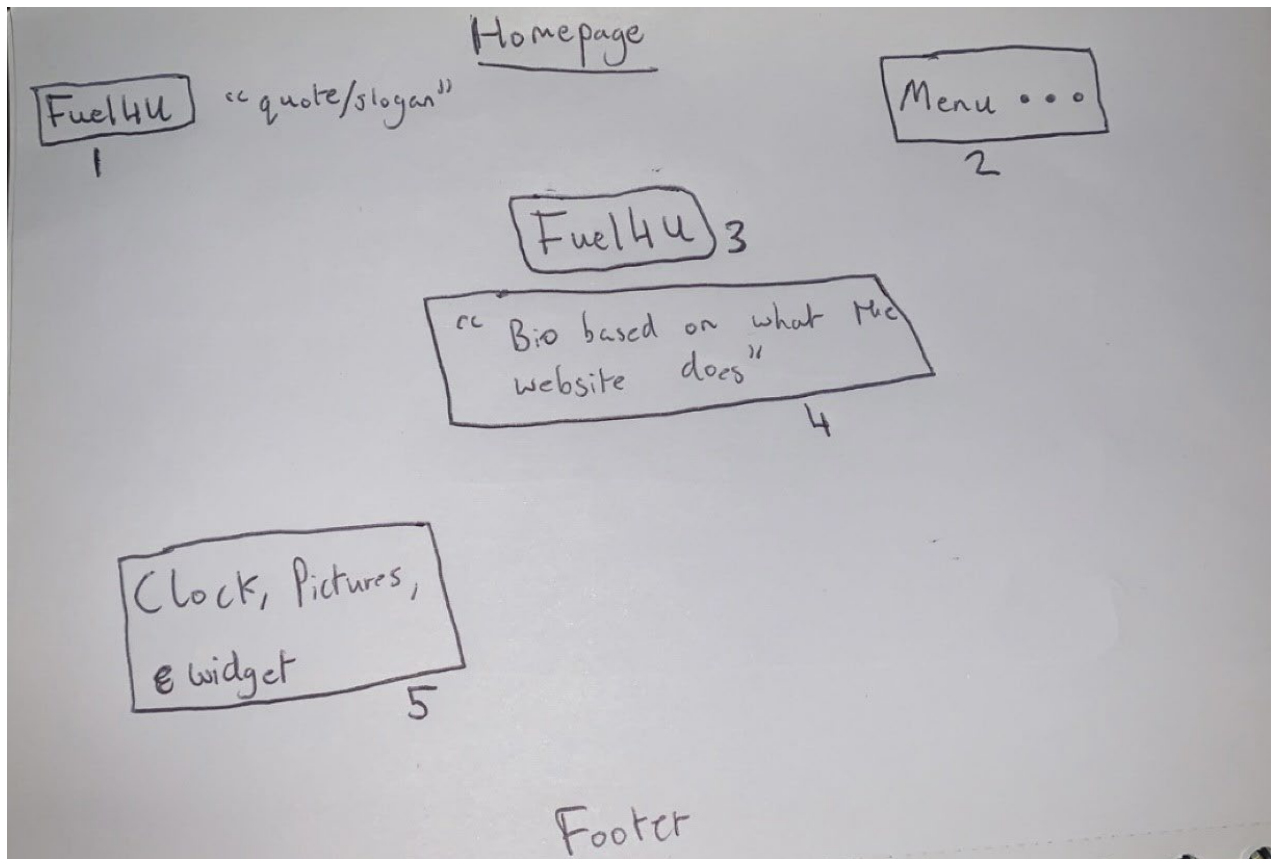 Homepage
Fuel4U "quote/slogan"
1
Menu • • •
2
Fuel4U 3
"Bio based on what the
website does"
4
Clock, Pictures,
& widget
5
Footer